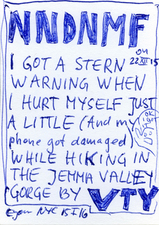 NNDNMF
ON
22 XII 15
I GOT A STERN
WARNING WHEN
I HURT MYSELF JUST
A LITTLE (And my
phone got damaged)
WHILE HIKING IN
THE JEMMA VALLEY
GORGE BY VTY
NYC 15 I 16